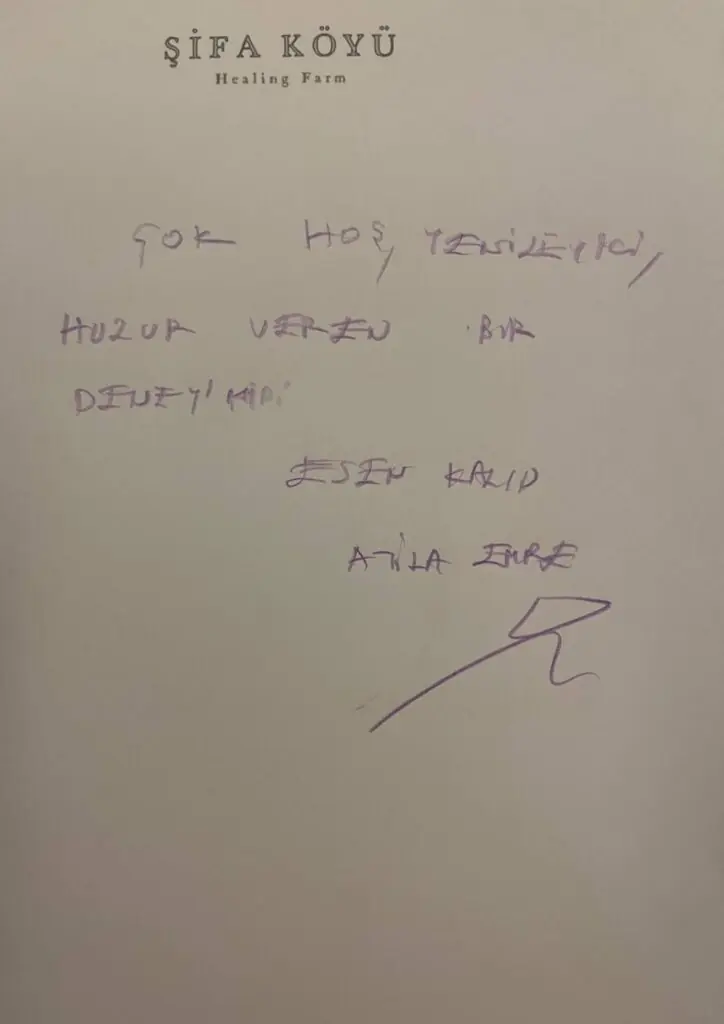 ŞİFA KÖYÜ
Healing Farm
ÇOK HOŞ, YENİLEYİCİ,
HUZUR VEREN BİR
DENEYİMDİ
ESEN KALIN
ATİLA EMRE